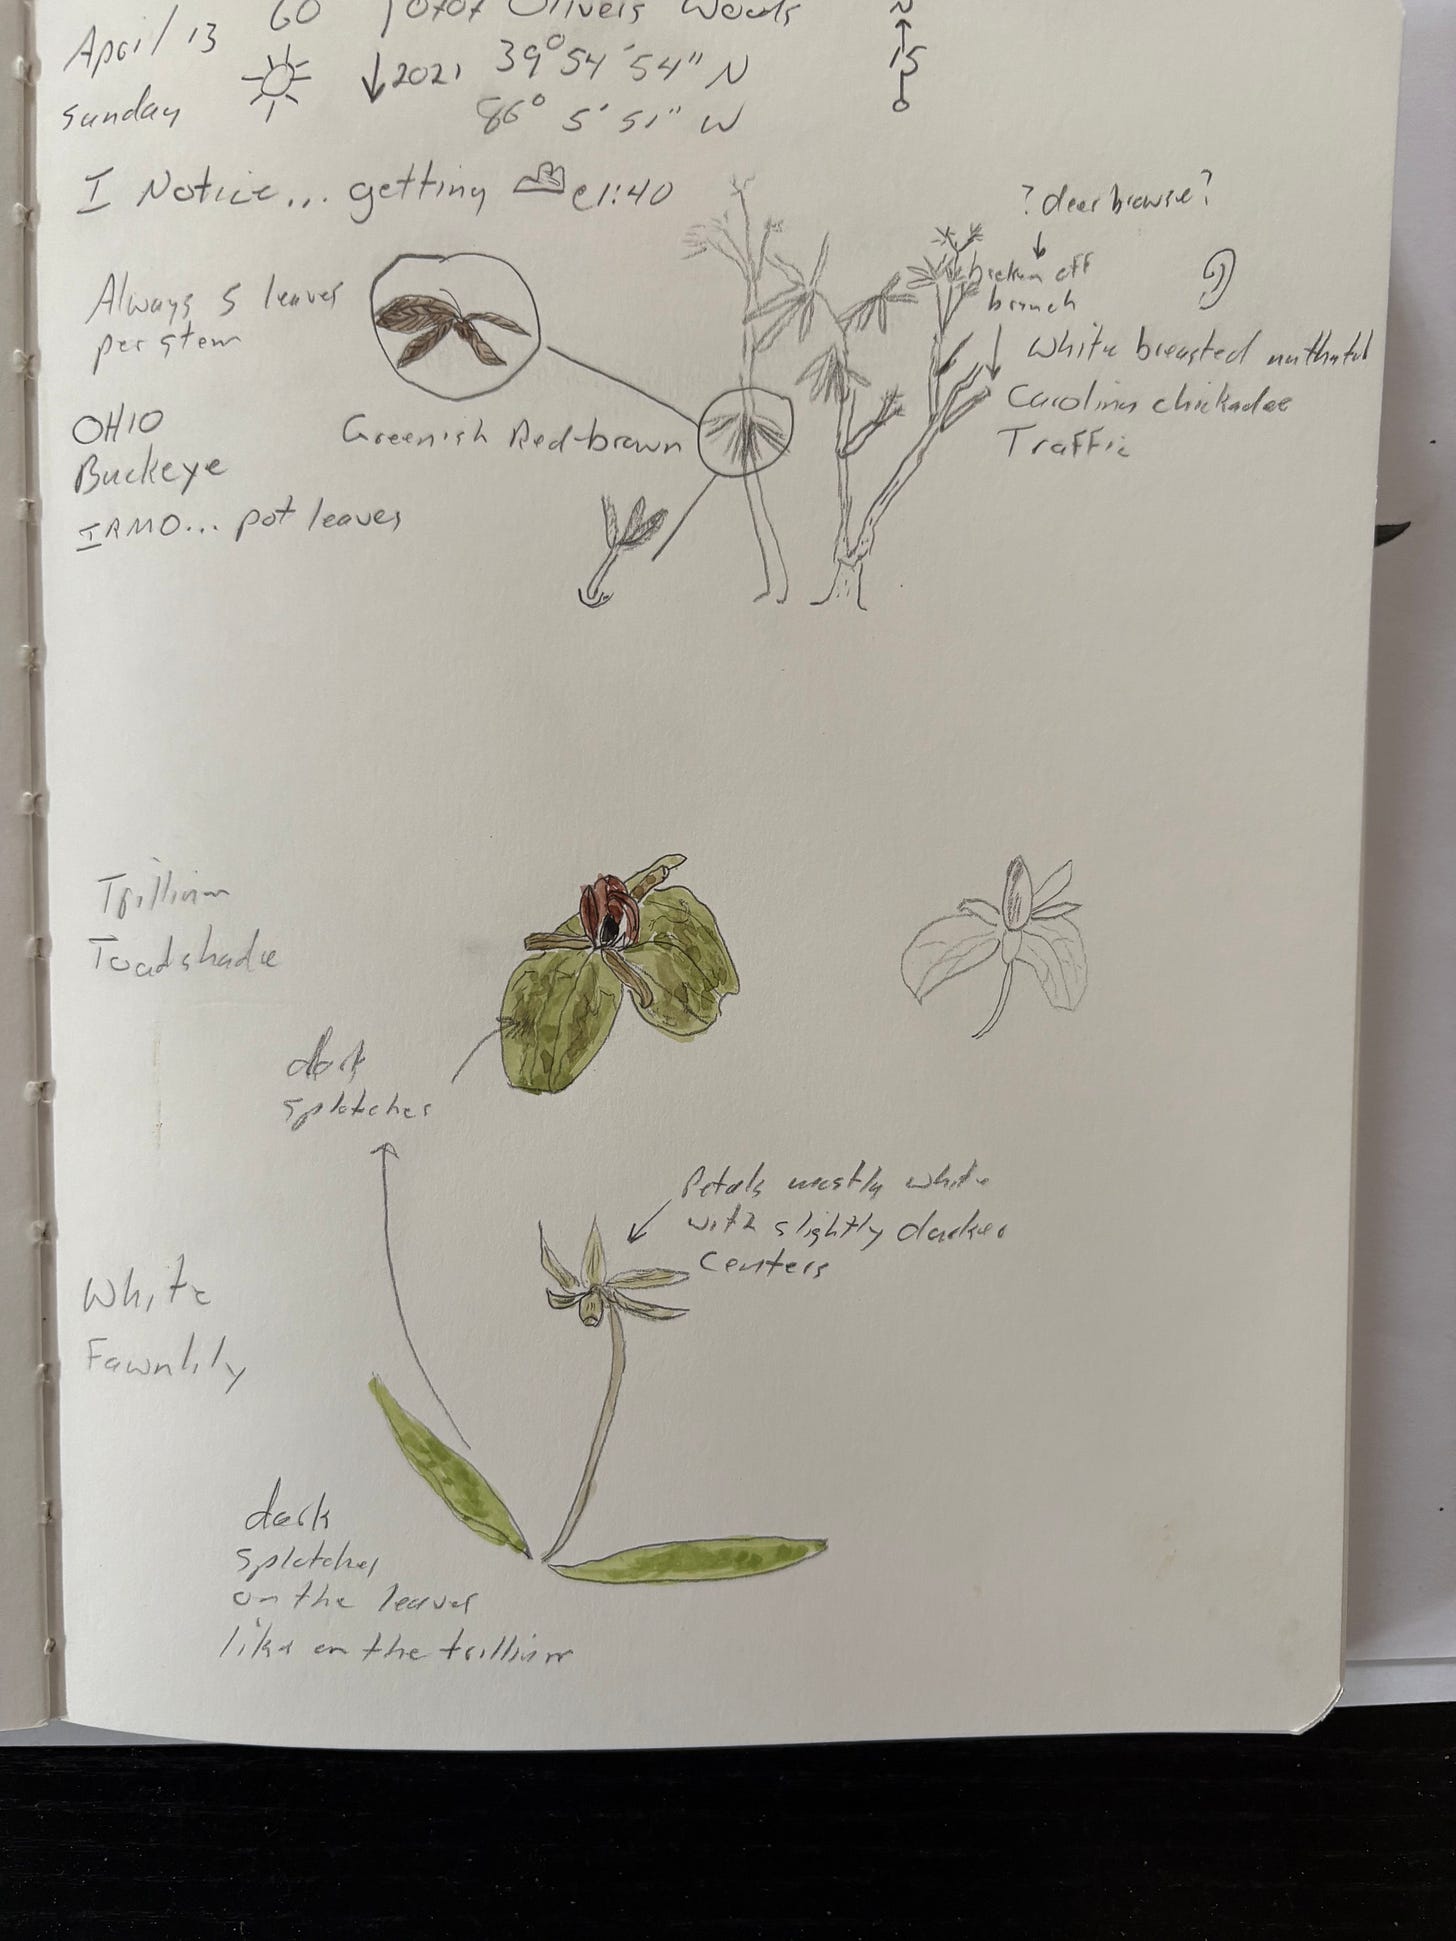 April 13 60 Oliver's Woods N
Sunday ↓2021 39° 54' 54" N 15
86° 5' 51" W
I Notice... getting @1:40
? deer browse?
broken off
branch
Always 5 leaves
per stem
White breasted nuthatch
Carolina chickadee
Traffic
Greenish Red-brown
OHIO
Buckeye
IRMO... pot leaves
Trillium
Toadshade
dark
splotches
Petals mostly white
with slightly darker
Centers
White
Fawnlily
dark
splotches
on the leaves
like on the trillium